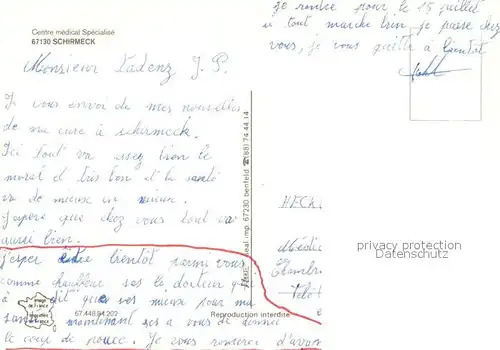 Centre médical Spécialisé
67130 SCHIRMECK
Monsieur Ladenz J. P.
Je vous envoi de mes nouvelles
de ma cure à schirmeck.
Ici tout va assez bien le
moral et très bon et la santé
va de mieux en mieux.
J'espère que chez vous tout va
aussi bien.
J'esper être bientot parmi vous
comme chauffeur ses le docteur qui
à dit que ses mieux pour ma
santé maintenant ses a vous de donné
le coup de pouce. Je vous remerci d'avance
je rentre pour le 15 juillet
si tout marche bien, je passe chez
vous, je vous quitte à bientot
67230 benfeld ☎ (88) 74.44.14
HECK
Médic
Chambr
privacy protection
image de France
67.448.84.202
Reproduction interdite